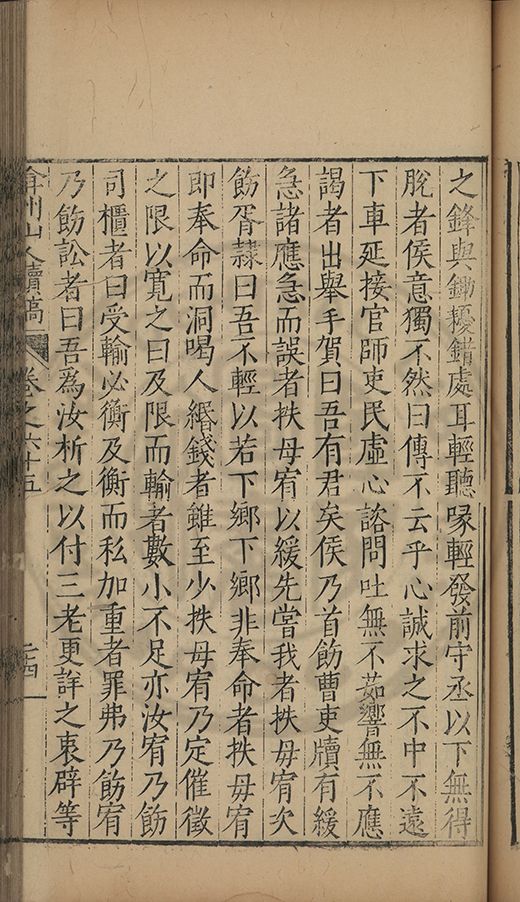 之鋒與鋤耰錯處耳輕聽喙輕發前守丞以下無得
脫者侯意獨不然曰傳不云乎心誠求之不中不遠
下車延接官師吏民虛心諮問吐無不茹響無不應
謁者出舉手賀曰吾有君矣侯乃首飭曹吏牘有緩
急諸應急而誤者抶毋宥以緩先嘗我者抶毋宥次
飭胥隸曰吾不輕以若下鄉下鄉非奉命者抶毋宥
即奉命而洞喝人緡錢者雖至少抶毋宥乃定催徵
之限以寬之曰及限而輸者數小不足亦汝宥乃飭
司櫃者曰受輸必衡及衡而私加重者罪弗乃飭宥
乃飭訟者曰吾為汝析之以付三老更詳之衷辟等
弇州山人續稿 卷之六十五 二四